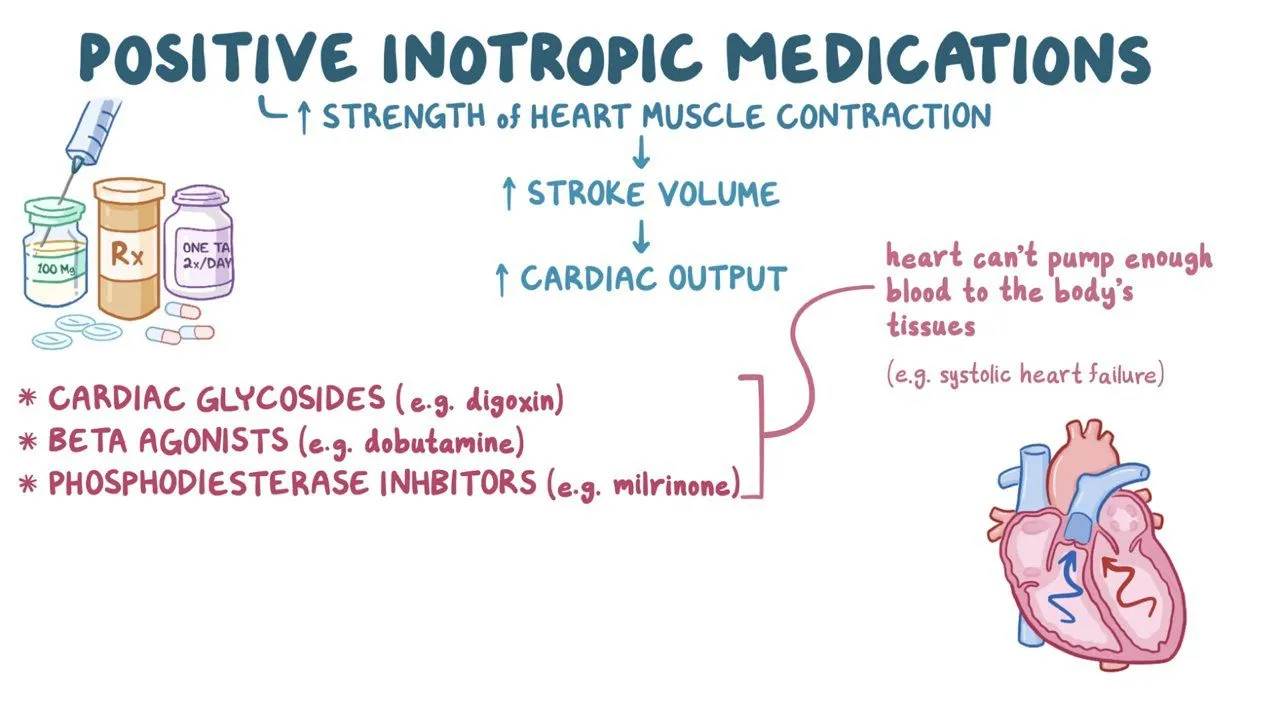 POSITIVE INOTROPIC MEDICATIONS
↑ STRENGTH of HEART MUSCLE CONTRACTION
↑ STROKE VOLUME
↑ CARDIAC OUTPUT
100 Mg
Rx
ONE TA
2x/DAY
heart can't pump enough
blood to the body's
tissues
(e.g. systolic heart failure)
* CARDIAC GLYCOSIDES (e.g. digoxin)
* BETA AGONISTS (e.g. dobutamine)
* PHOSPHODIESTERASE INHBITORS (e.g. milrinone)